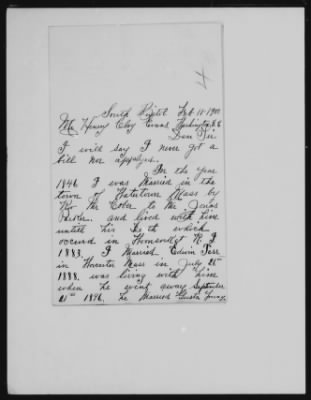 4
South Bristol Feb 18 1900
Mr Henry Clay Evans Washington D.C.
Dear Sir
I will say I never got a
bill nor applyed.
In the year
1846 I was Married in the
town of Mass by
Rev Mr to Mr
and lived with him
untill his death which
occured in R I
1883. I Married Edwin
in Mass in July 25
1888. was living with him
when he went away September
21st 1896, he Married